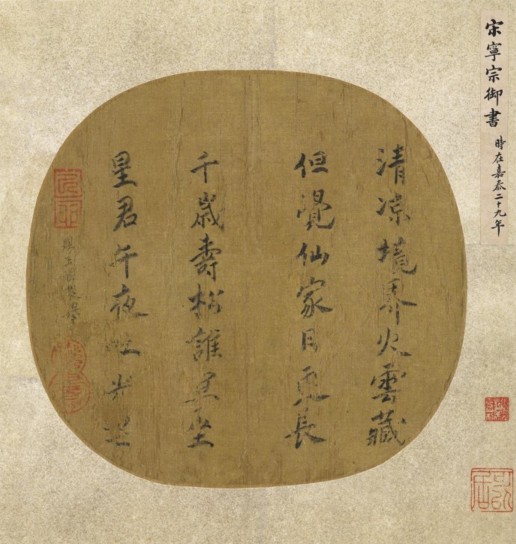 宋寧宗御書
時在嘉泰二十九年
清凉境界火雲藏
但覺仙家日更長
千歲壽松誰共坐
星君午夜步